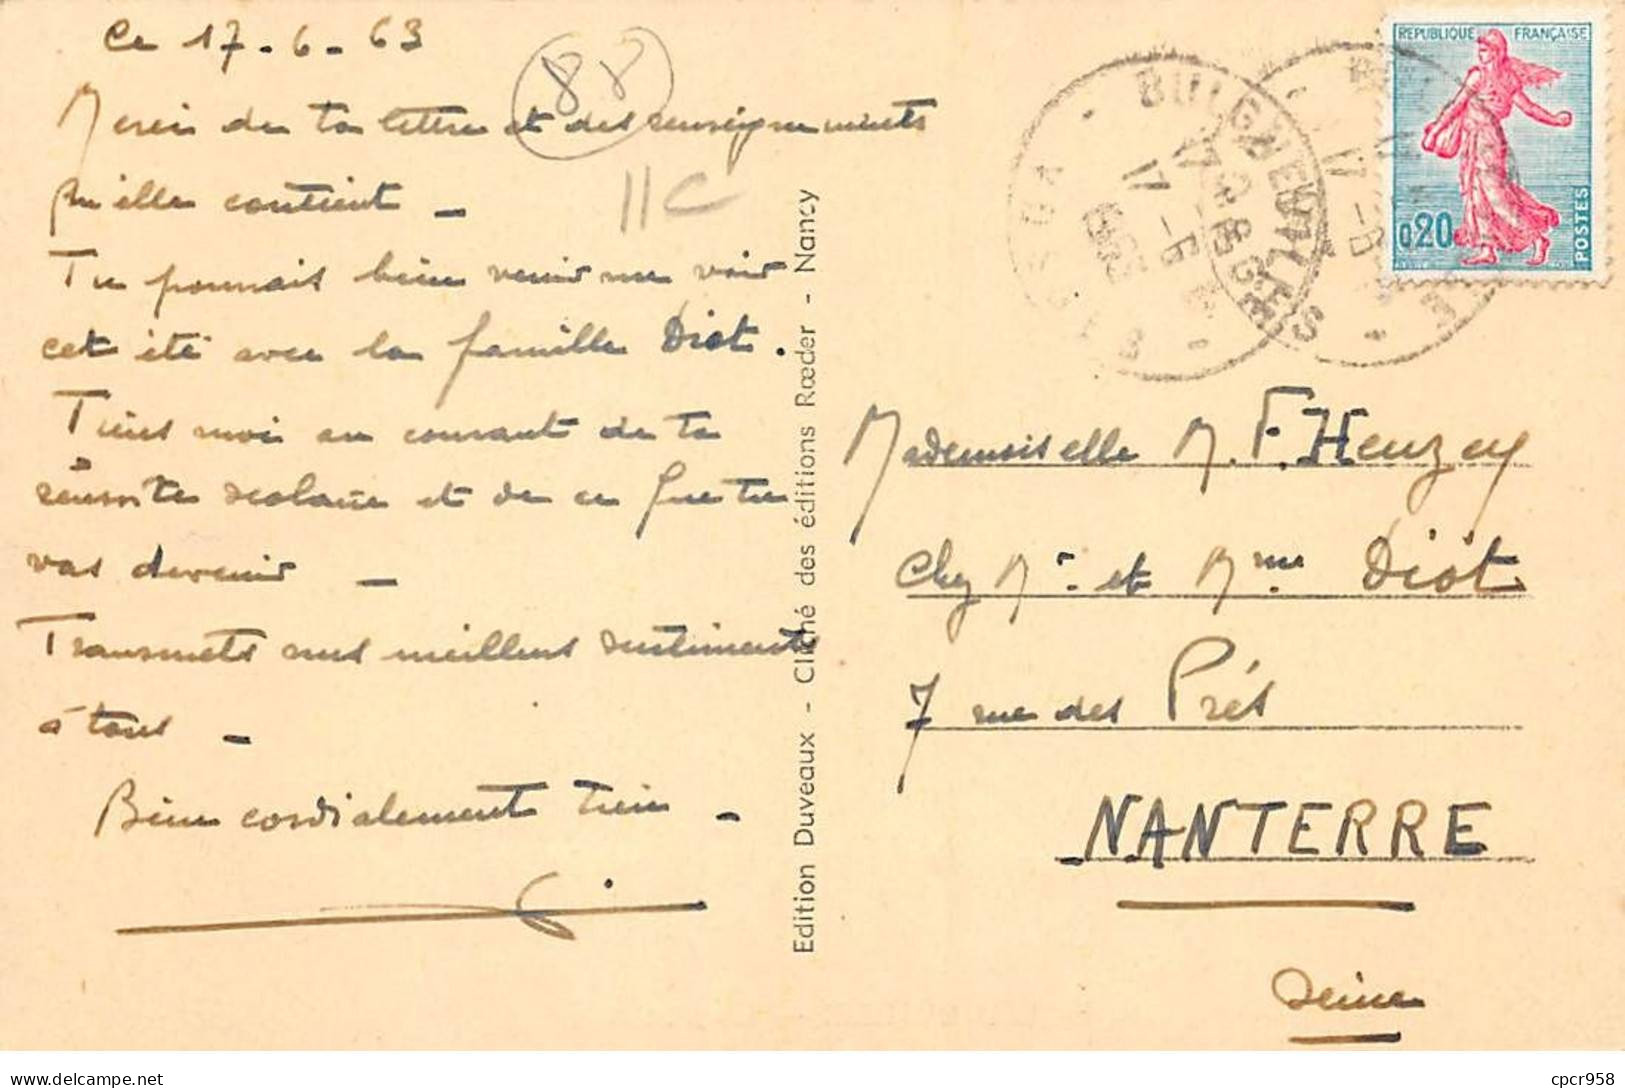 ce 17-6-63
88
Merci de ta lettre et des renseignements
11C
qu'elle contient -
Tu pourrais bien venir me voir
cet été avec la famille Diot.
Tiens moi au courant de ta
réussite scolaire et de ce que tu
vas devenir -
Transmets mes meilleurs sentiments
à tous -
Bien cordialement tien -
Edition Duveaux - Cliché des éditions Rœder - Nancy
BULGNEVILLE
VOSGES
17 -6
1963
REPUBLIQUE FRANÇAISE
0,20
POSTES
Mademoiselle M. F. Heuzey
Chez Mr et Mme Diot
7 rue des Prés
NANTERRE
Seine
delcampe.net
cpcr958